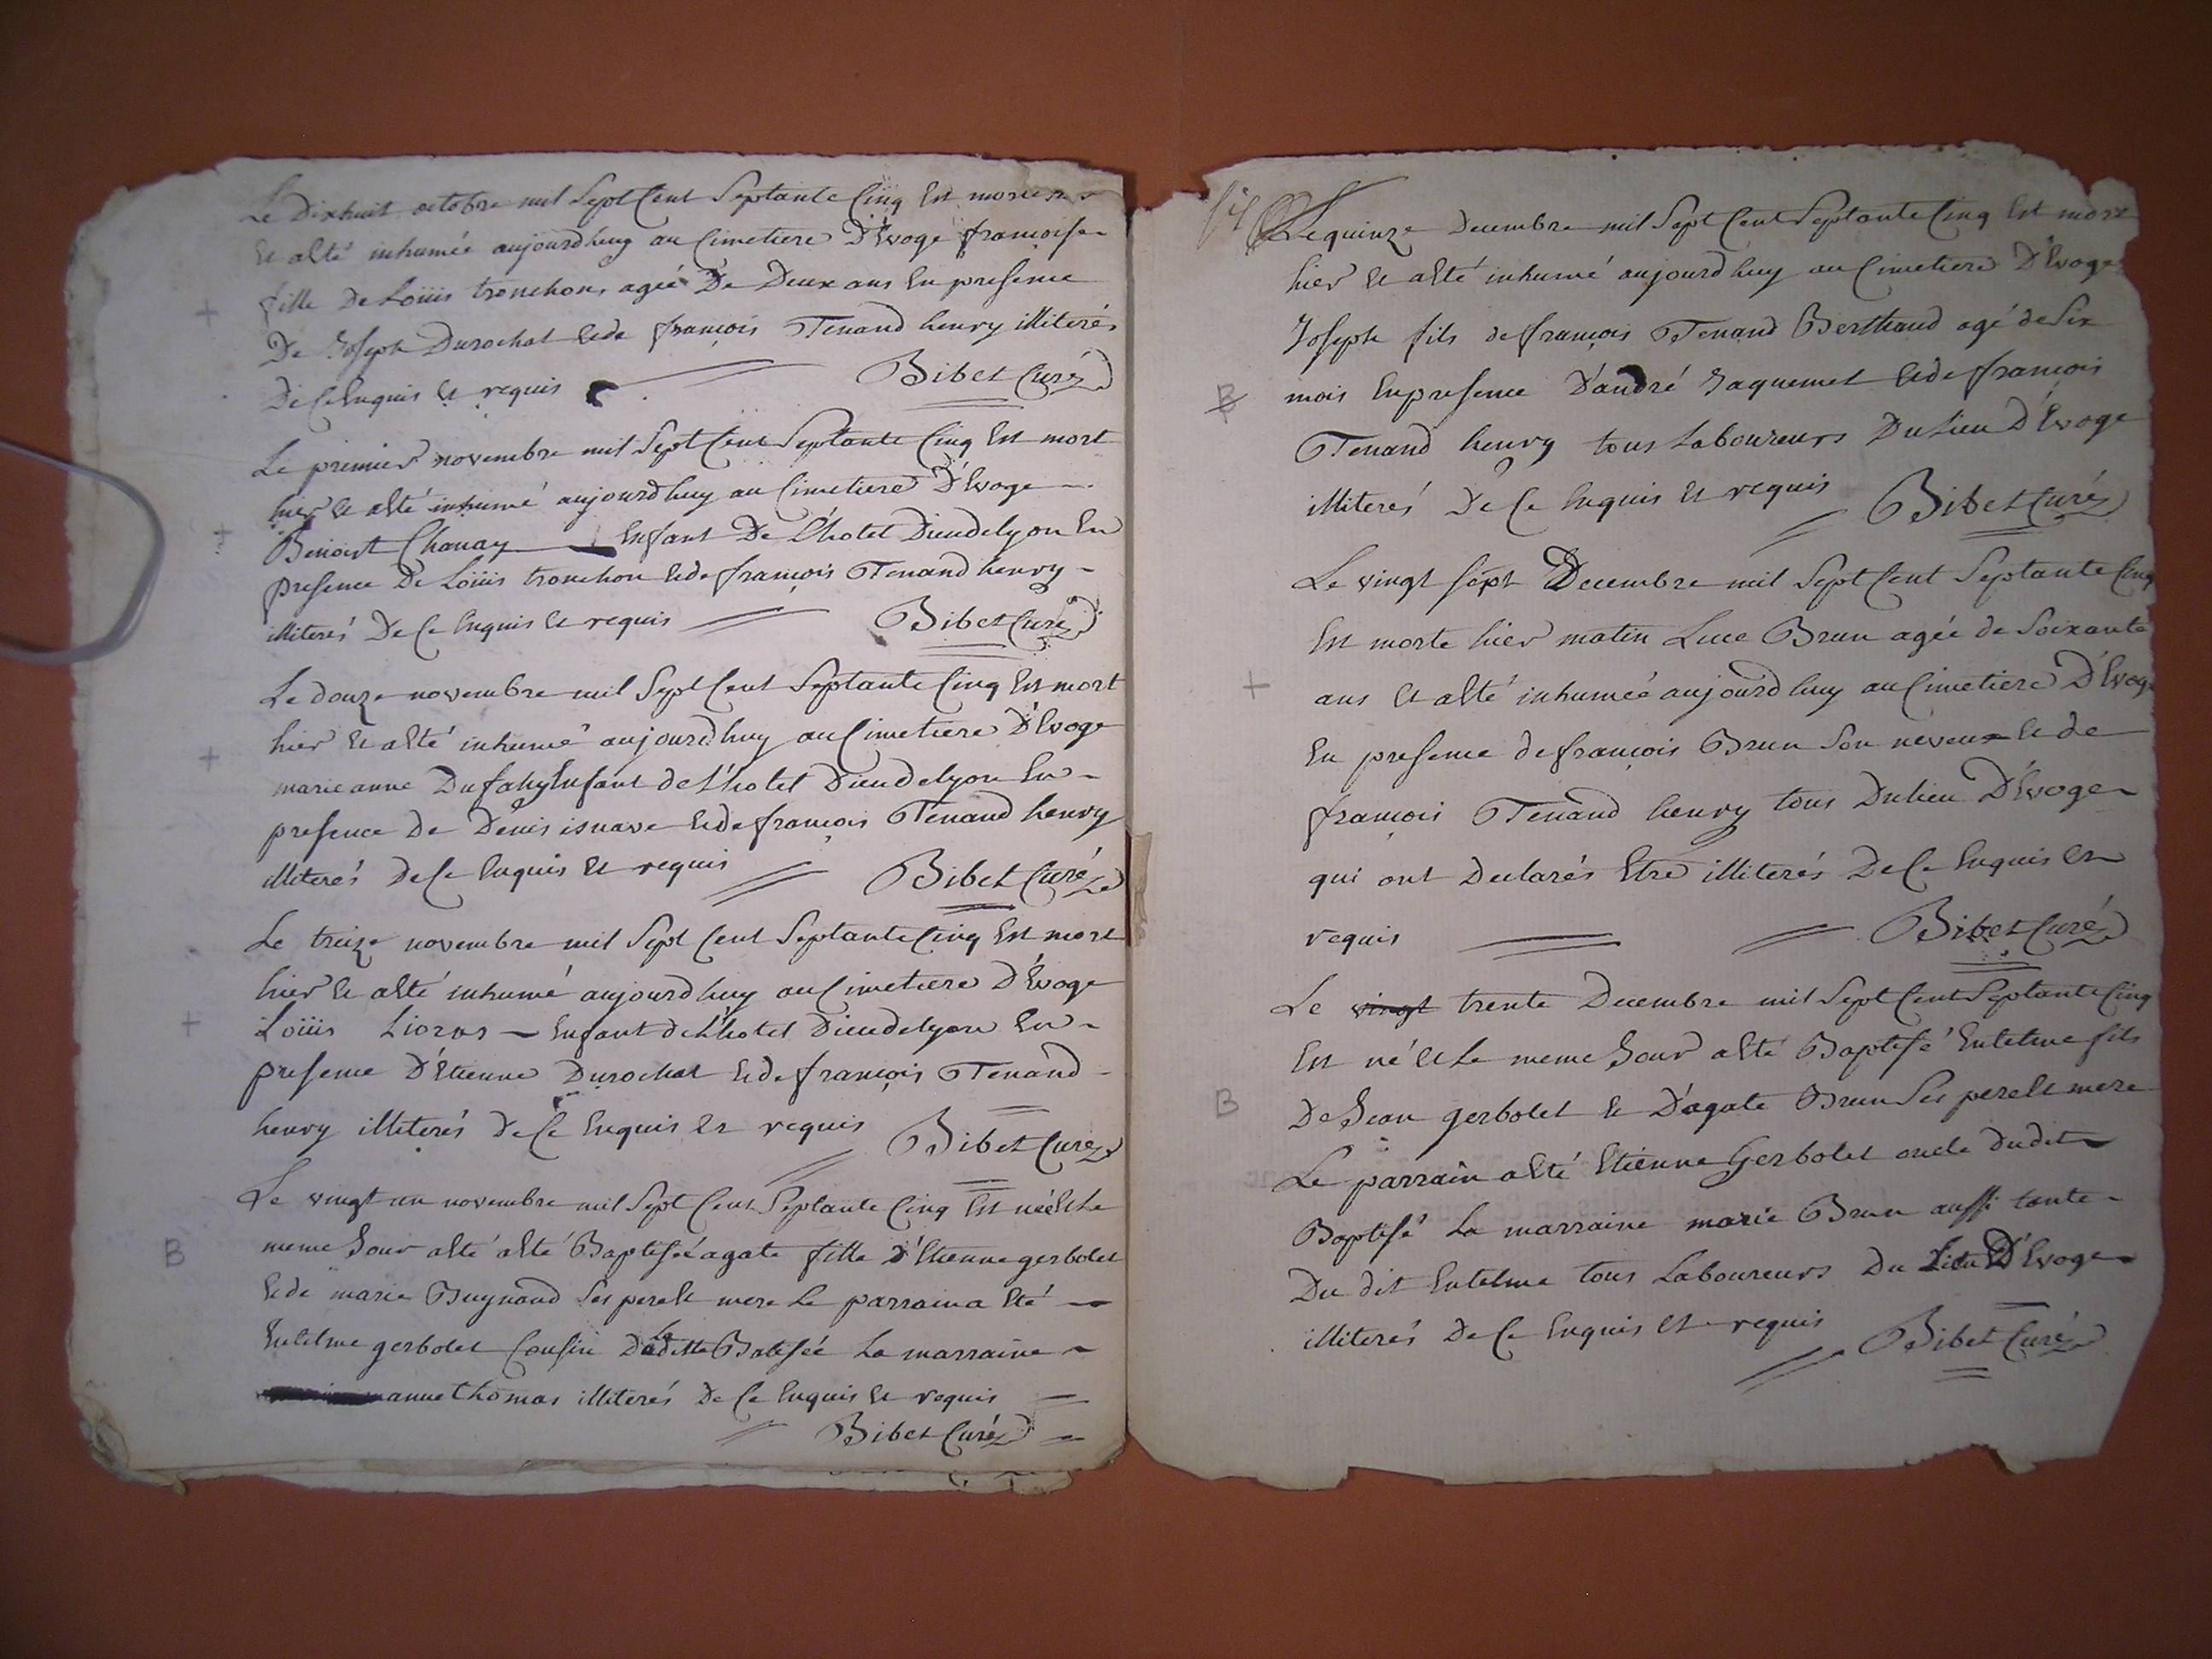 Le Dixhuit octobre mil Sept Cent Septante Cinq Est morte
Et a Eté inhumée aujourdhuy au Cimetiere D'Evoge francoise
fille De Loüis tronchon, ageé De Deux ans En presence
De Joseph Durochat Et de françois Tenand henry illiterés
De Ce Enquis Et requis Bibet Curé
Le premier novembre mil Sept Cent Septante Cinq Est mort
hier Et a Eté inhumé aujourdhuy au Cimetiere D'Evoge
Benoist Chanay Enfant De L'hotel Dieu de lyon En
presence De Loüis tronchon Et de françois Tenand henry
illiterés De Ce Enquis Et requis Bibet Curé
Le douze novembre mil Sept Cent Septante Cinq Est mort
hier Et a Eté inhumé aujourdhuy au Cimetiere D'Evoge
marie anne Enfant de L'hotel Dieu de lyon En
presence de Denis isnave Et de francois Tenand henry
illiterés De Ce Enquis Et requis Bibet Curé
Le treize novembre mil Sept Cent Septante Cinq Est mort
hier Et a Eté inhumé aujourdhuy au Cimetiere D'Evoge
Loüis Enfant de L'hotel Dieu de lyon En
presence D'Etienne Durochat Et de françois Tenand
henry illiterés De Ce Enquis Et requis Bibet Curé
Le vingt un novembre mil Sept Cent Septante Cinq Est neé Et Le
B meme Jour a Eté a Eté Baptiseé agate fille D'Etienne gerbolet
Et de marie Buynand Ses pere Et mere Le parrain a Eté
Entelme gerbolet Cousin De ladette Batiseé La marraine
anne thomas illiterés De Ce Enquis Et requis
Bibet Curé
Le quinze Decembre mil Sept Cent Septante Cinq Est mort
hier Et a Eté inhumé aujourdhuy au Cimetiere D'Evoge
Joseph fils de françois Tenand Berthaud agé de Six
B mois En presence D'andré Jaquemet Et de francois
Tenand henry tous Laboureurs Du Lieu D'Evoge
illiterés De Ce Enquis Et requis Bibet Curé
Le vingt sept Decembre mil Sept Cent Septante Cinq
Est morte hier matin Luce Brun ageé de Soixante
ans Et a Eté inhumeé aujourdhuy au Cimetiere D'Evoge
En presence de françois Brun Son neveu Et de
françois Tenand henry tous Du lieu D'Evoge
qui ont Declarés Etre illiterés De Ce Enquis Et
requis Bibet Curé
Le vingt trente Decembre mil Sept Cent Septante Cinq
Est né Et Le meme Jour a Eté Baptisé Entelme fils
B De Jean gerbolet Et D'agate Brun Ses pere Et mere
Le parrain a Eté Etienne Gerbolet oncle dudit
Baptisé La marraine marie Brun aussi tante
Du dit Entelme tous Laboureurs Du Lieu D'Evoge
illiterés De Ce Enquis Et requis Bibet Curé